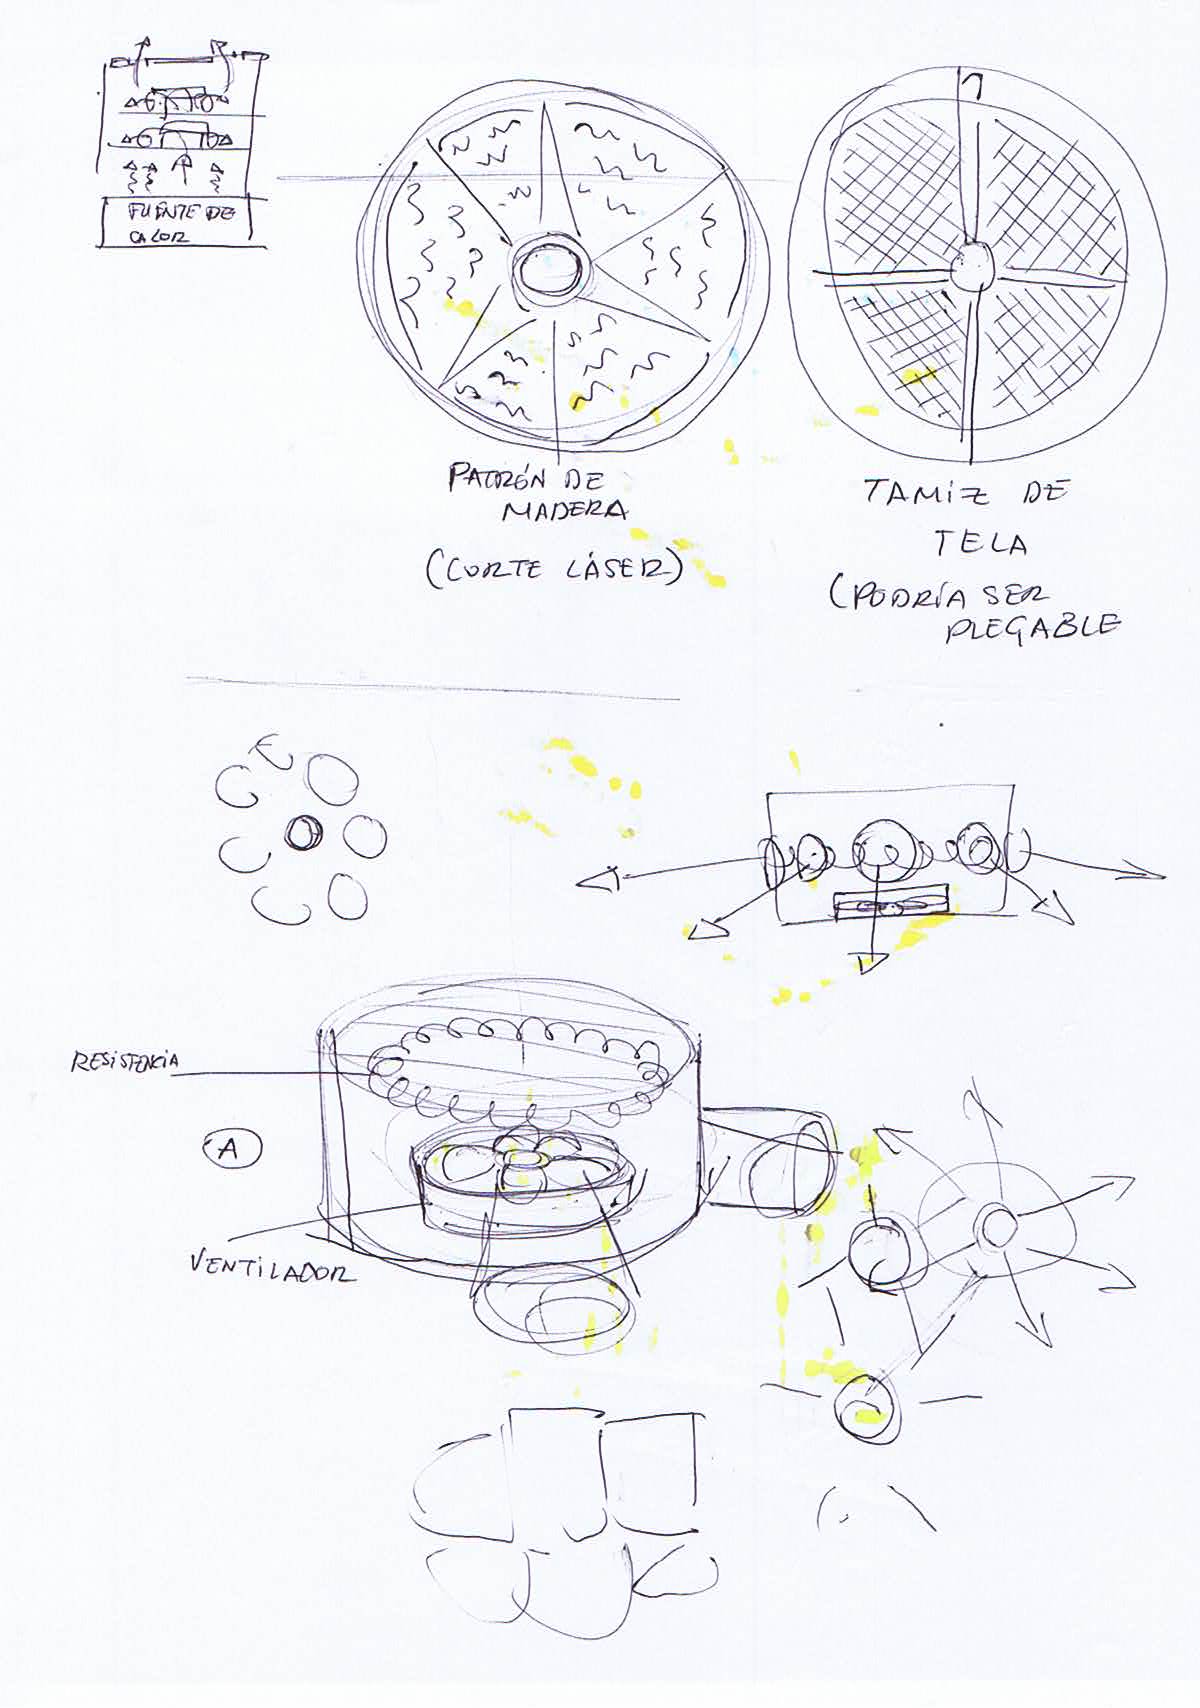 FUENTE DE
CALOR
PATRÓN DE
MADERA
(CORTE LÁSER)
TAMIZ DE
TELA
(PODRÍA SER
PLEGABLE
RESISTENCIA
A
VENTILADOR